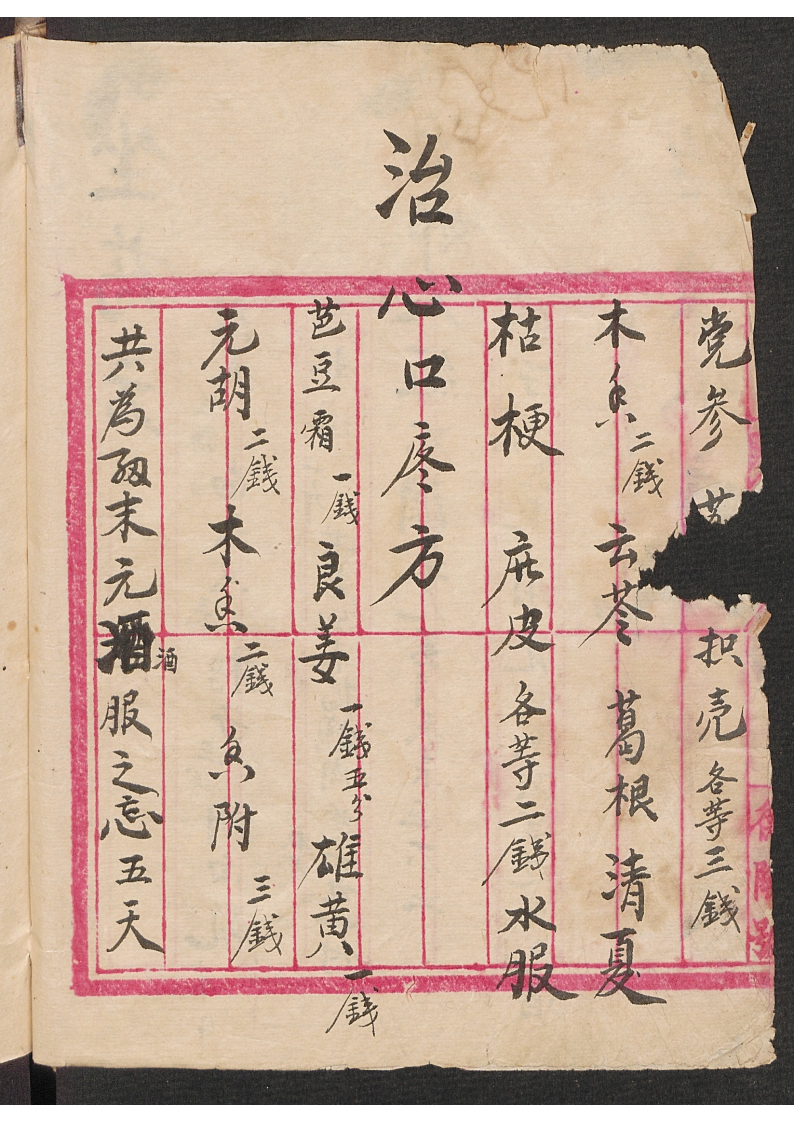 党参 枳壳各等三錢
木香二錢 云苓 葛根 清夏
枯梗 庇皮 各等二錢 水服
治心口疼方
芭豆霜一錢 良姜一錢五分 雄黄一錢
元胡二錢 木香二錢 香附三錢
共為細末元酒酒服之忘五天